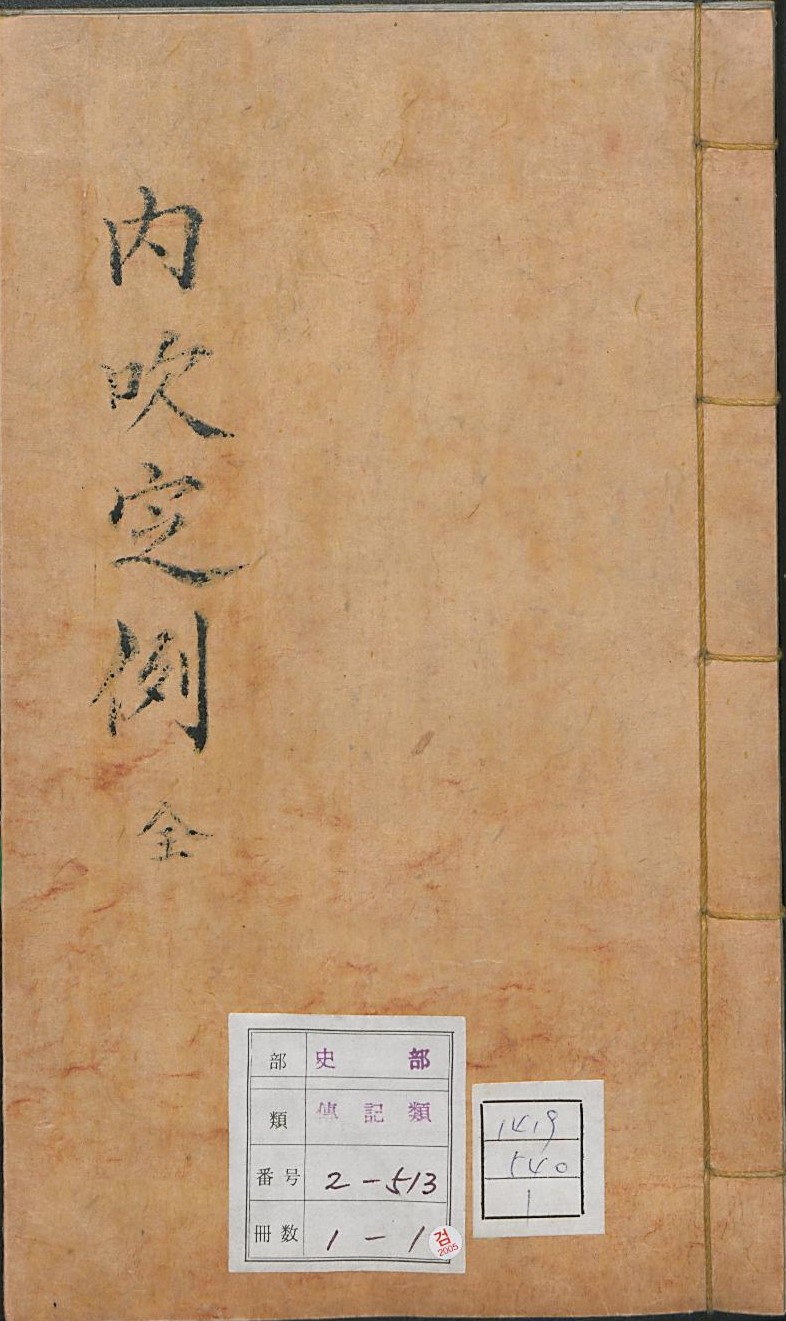 内吹定例 全
部 史部
類 傳記類
番号 2-513
冊数 1-1
검
2005
1419
540
1